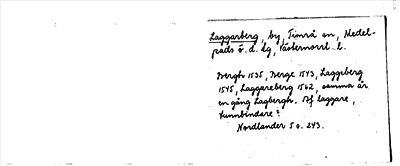 Laggarberg, by, Timrå sn, Medel-
pads ö. d. dg, Västernorrl. l.
Bergh 1535, Berge 1543, Laggeberg
1545, Laggareberg 1562, samma år
en gång Lagbergh. Jf laggare,
tunnbindare?
Nordlander S o. 243.